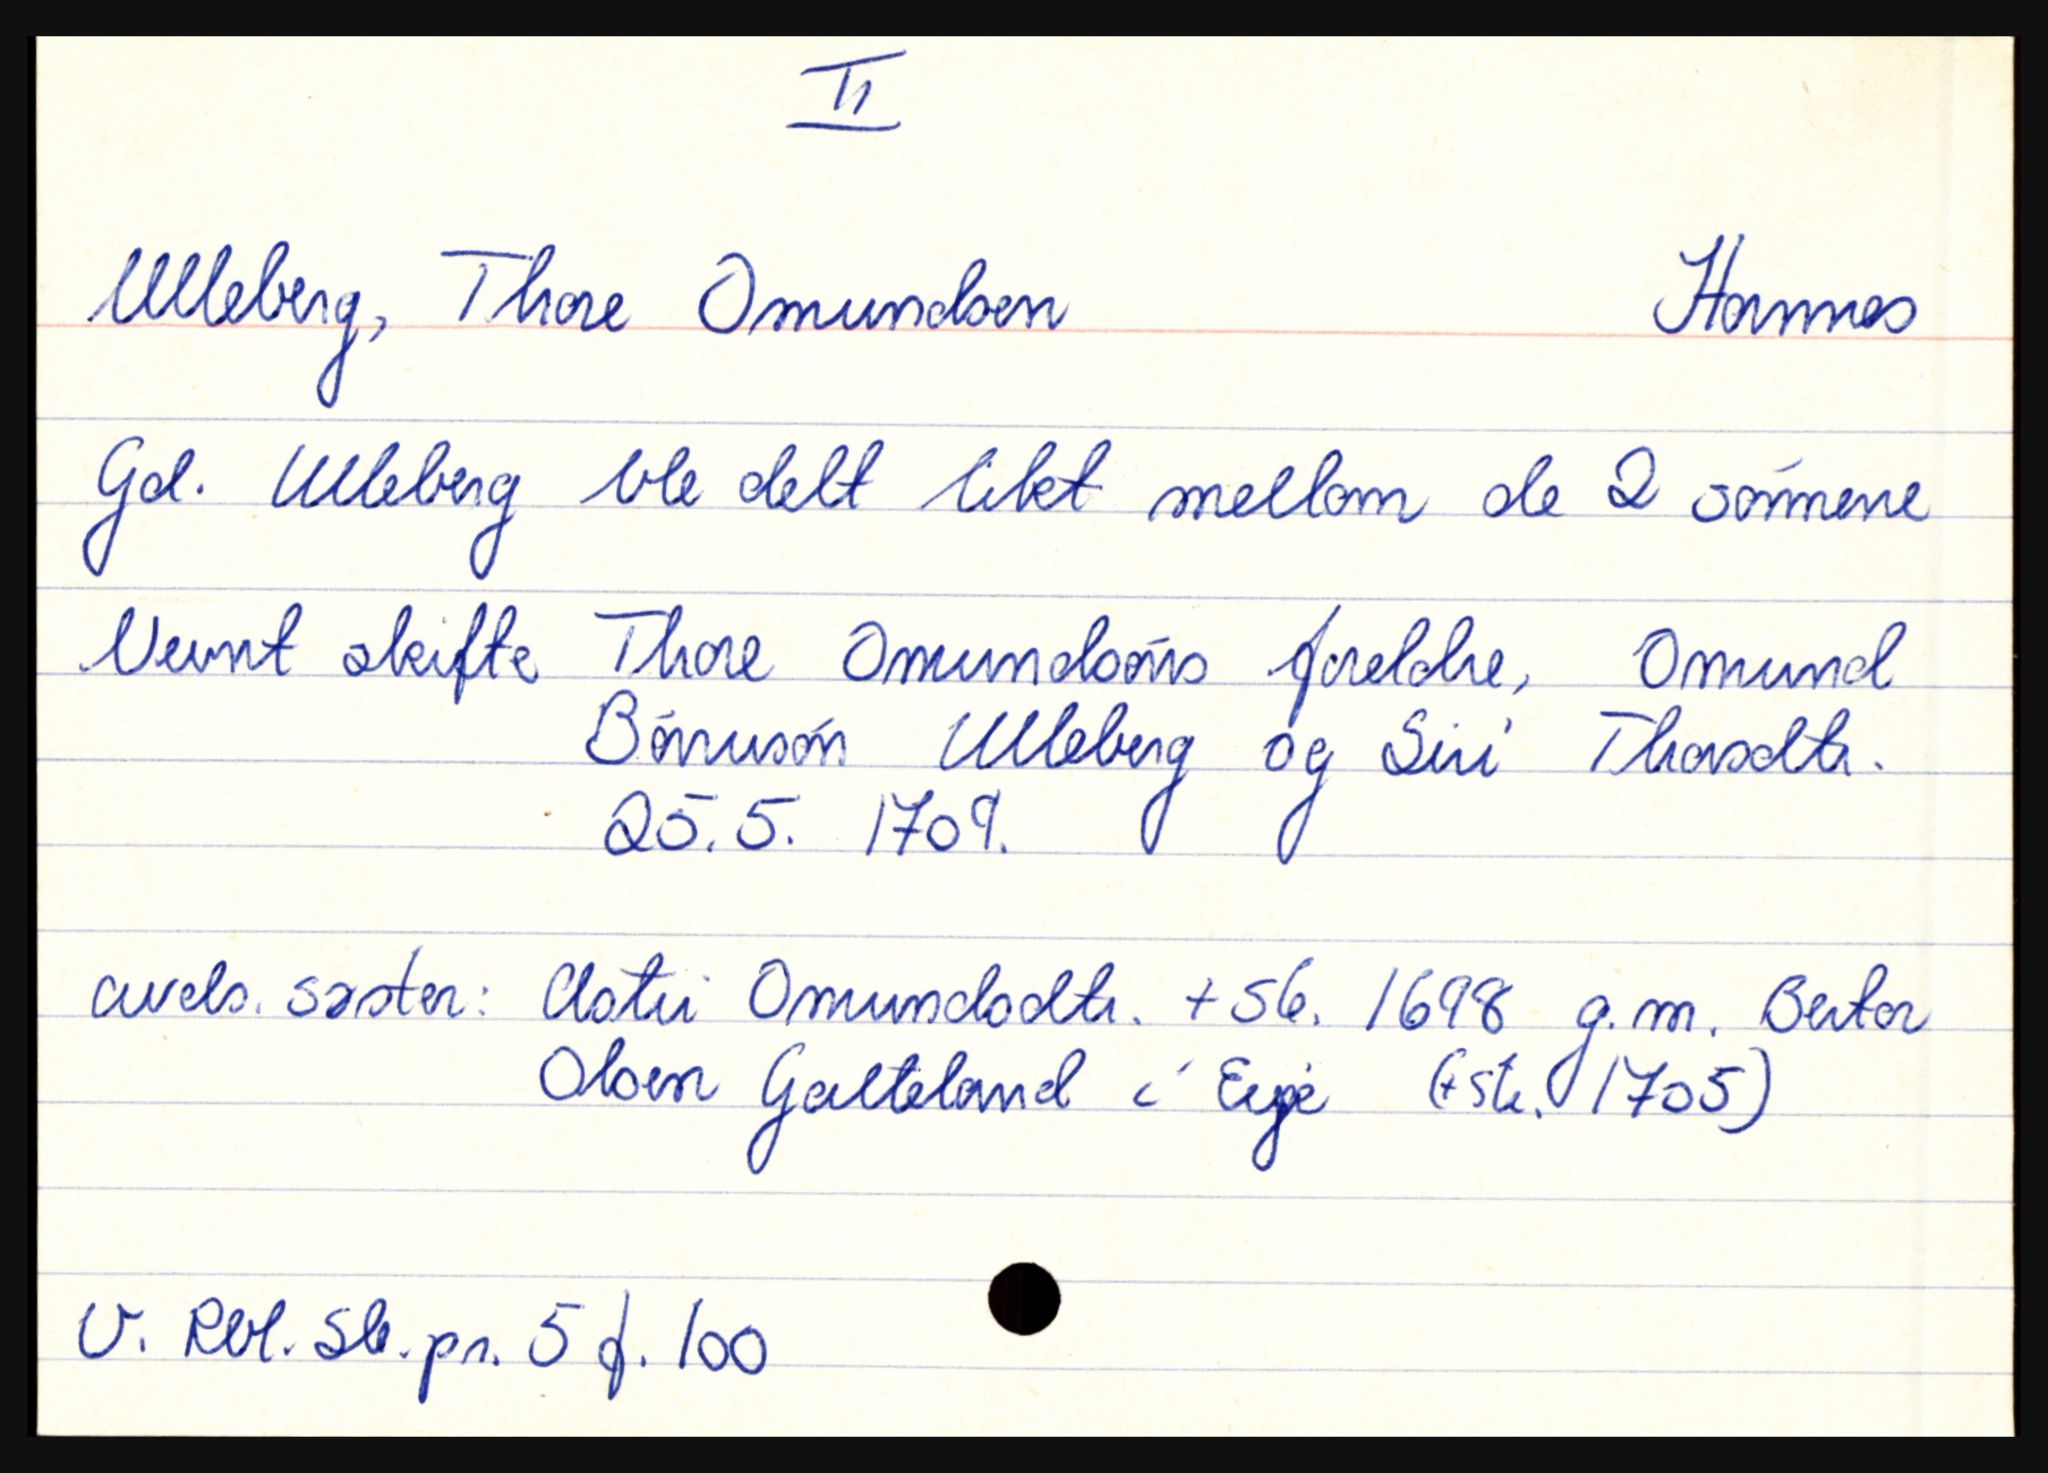 II
Ulleberg, Thore Omundsen Hornnes
Gd. Ulleberg ble delt likt mellom de 2 sønnene
Nevnt skifte Thore Omundsøns foreldre, Omund
Bönnusøn Ulleberg og Siri Thorsdtr.
25. 5. 1709.
avds. søster: Astri Omundsdtr. + sk. 1698 g.m. Bertor
Olsen Galteland i Evje (+ sk. 1705)
V. Rbl. Sk. pr. 5 f. 100